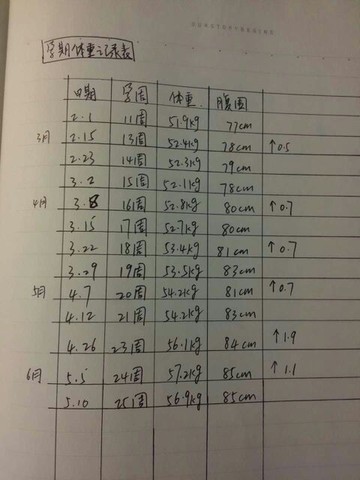 孕期体重记录表
日期 孕周 体重 腹围
2.1 11周 51.9kg 77cm
3月 2.15 13周 52.4kg 78cm ↑0.5
2.23 14周 52.3kg 79cm
3.2 15周 52.11kg 78cm
4月 3.8 16周 52.8kg 80cm ↑0.7
3.15 17周 52.7kg 80cm
3.22 18周 53.4kg 81cm ↑0.7
3.29 19周 53.5kg 83cm
5月 4.7 20周 54.2kg 81cm ↑0.7
4.12 21周 54.2kg 83cm
4.26 23周 56.1kg 84cm ↑1.9
6月 5.5 24周 57.2kg 85cm ↑1.1
5.10 25周 56.9kg 85cm